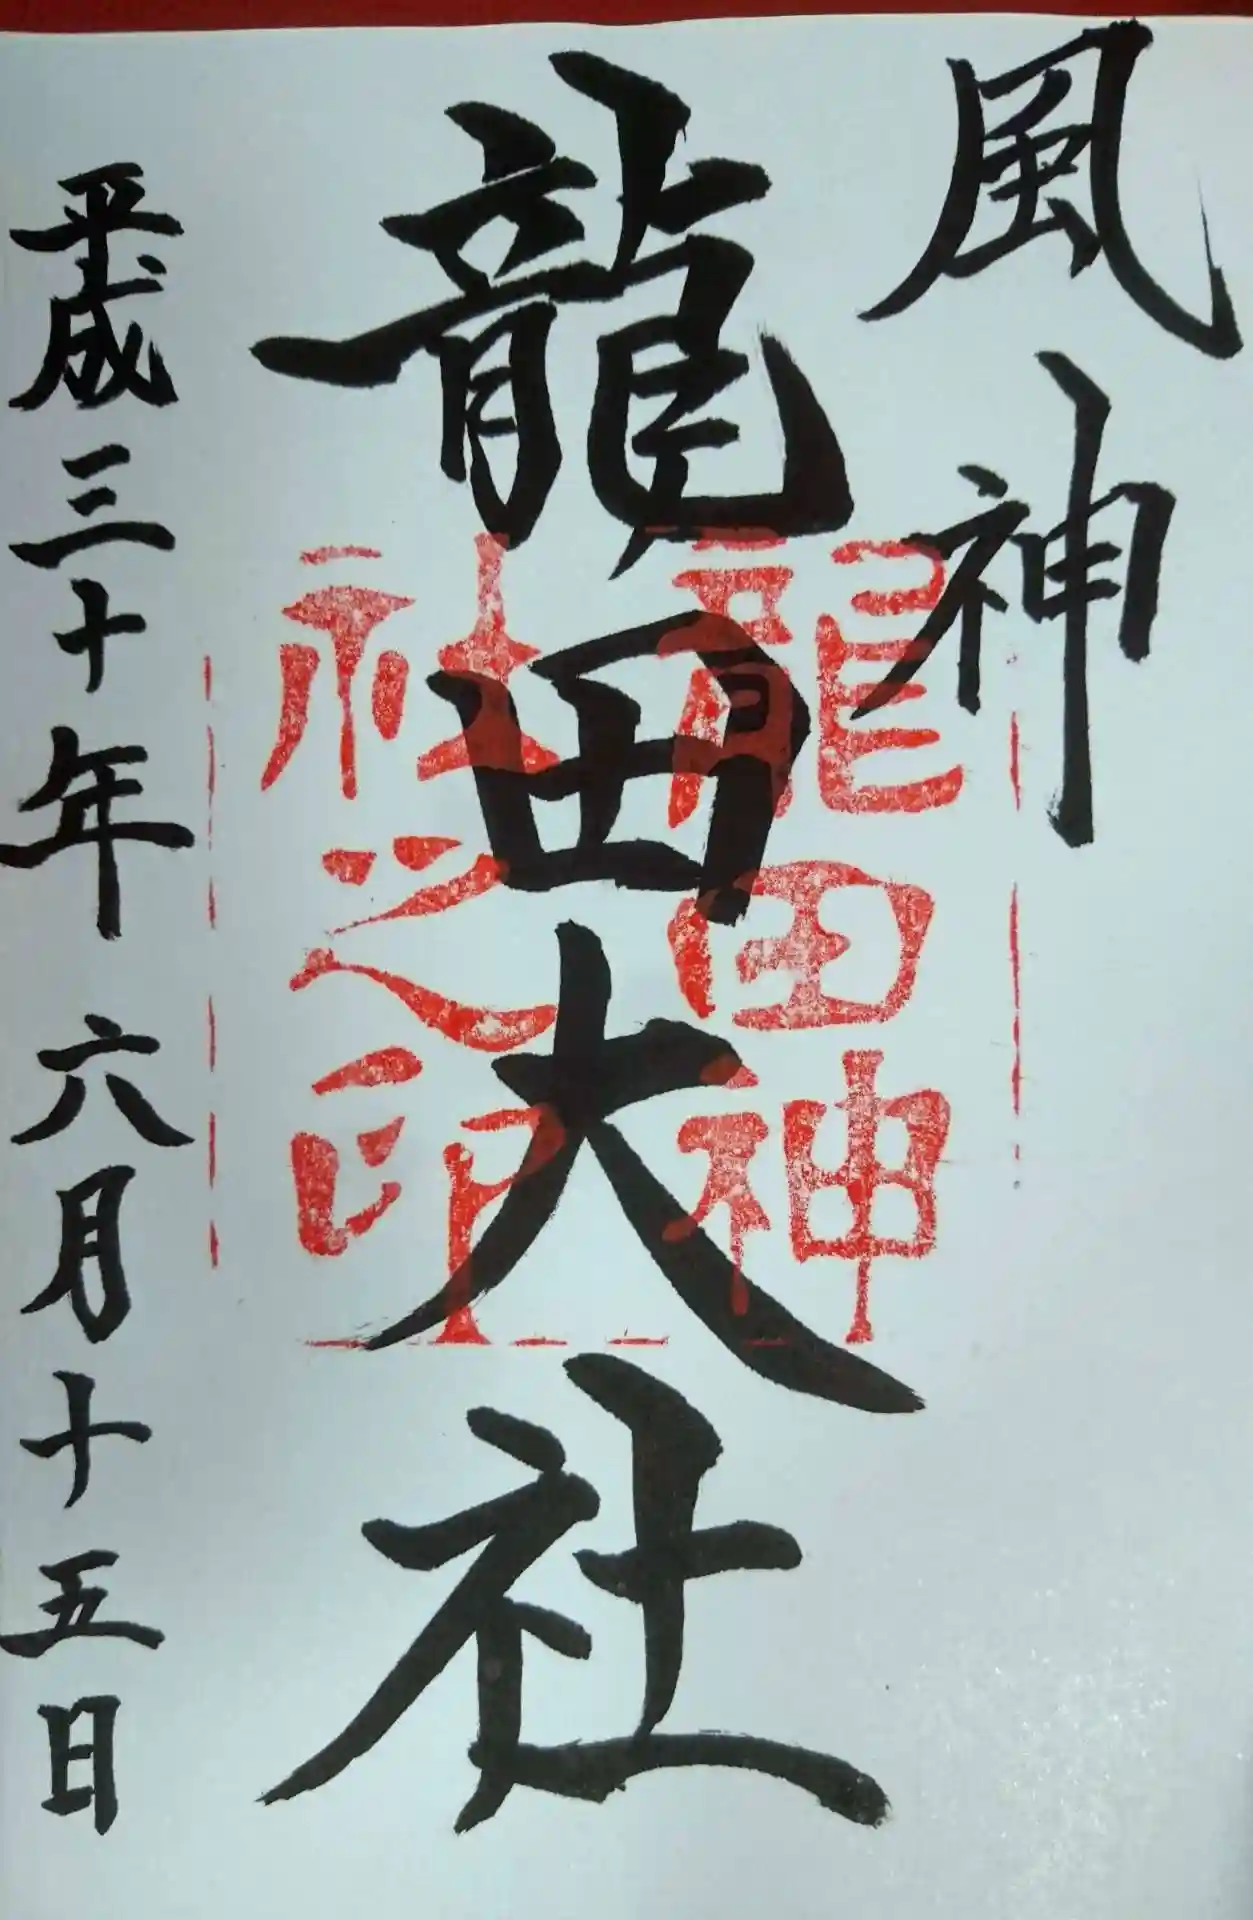 風神
龍田大社
龍田神
社之印
平成三十年六月十五日